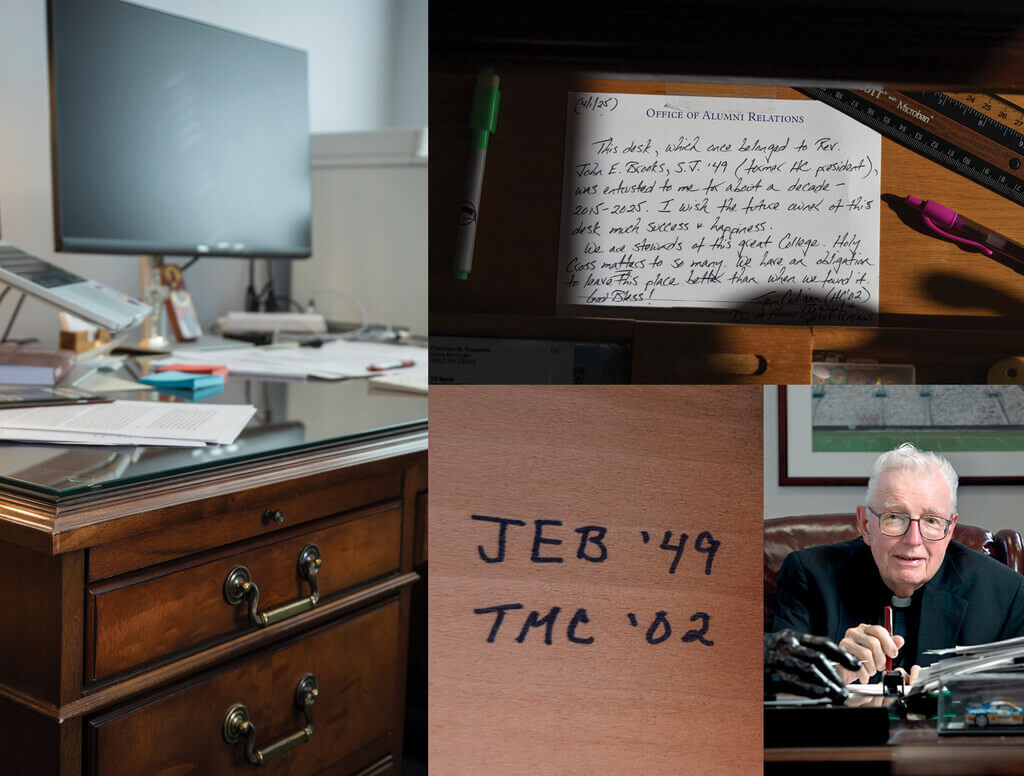 (4/1/25)
OFFICE OF ALUMNI RELATIONS
This desk, which once belonged to Rev.
John E. Brooks, S.J. '49 (former HC president),
was entrusted to me for about a decade –
2015-2025. I wish the future owner of this
desk much success & happiness.
We are stewards of this great College. Holy
Cross matters to so many. We have an obligation
to leave this place better than when we found it.
God Bless!
(HC '02)
Microban
JEB '49
TMC '02